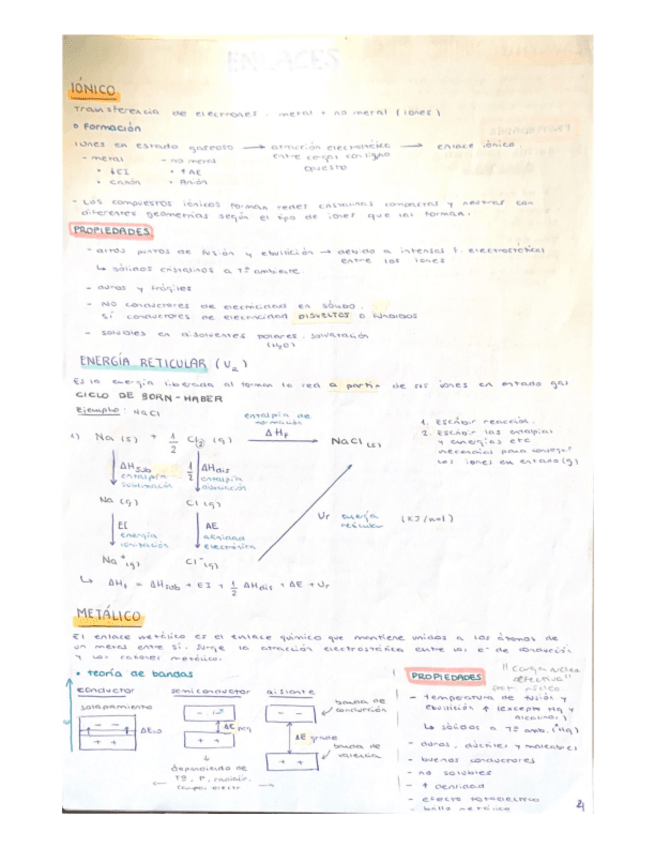 ENLACES
IÓNICO
Transferencia de electrones. metal + no metal (iones)
• Formación
iones en estado gaseoso → atracción electrostática → enlace iónico
entre cargas con signo
opuesto
- metal - no metal
• ↓EI • ↑AE
• Catión • Anión
- Los compuestos iónicos forman redes cristalinas compactas y neutras con
diferentes geometrías según el tipo de iones que las forman.
PROPIEDADES
- altos puntos de fusión y ebullición → debido a intensas f. electrostáticas
entre los iones
↳ sólidos cristalinos a Tª ambiente.
- duros y frágiles
- NO conductores de electricidad en sólido.
SÍ conductores de electricidad DISUELTOS O FUNDIDOS
- solubles en disolventes polares. solvatación
(H2O)
ENERGÍA RETICULAR (U
Es la energía liberada al formar la red a partir de sus iones en estado gas
CICLO DE BORN-HABER
Ejemplo: NaCl
1. Escribir reacción.
2. Escribir las entalpías
y energías etc
necesarias para conseguir
los iones en estado (g)
entalpía de
formación
1) Na (s) + 1/2 Cl2 (g) ΔHf → NaCl (s)
ΔHsub 1/2 ΔHdis
entalpía entalpía
sublimación disociación
Na (g) Cl (g)
Ur energía (KJ/mol)
reticular
EI AE
energía afinidad
ionización electrónica
Na+ (g) Cl- (g)
↳ ΔHf = ΔHsub + EI + 1/2 ΔHdis + AE + Ur
METÁLICO
El enlace metálico es el enlace químico que mantiene unidos a los átomos de
un metal entre sí. Surge la atracción electrostática entre los e- de conducción
y los cationes metálicos.
• teoría de bandas
conductor semiconductor aislante
solapamiento
banda de
conducción
ΔE=0 ΔE peq ΔE grande
banda de
valencia
dependiendo de
Tª, P, radiac.
campo eléctr
PROPIEDADES
"Carga nuclear
efectiva"
- temperatura de fusión y
ebullición ↑ (excepto Hg y
alcalinos)
↳ sólidos a Tª amb. (Hg)
- duros, dúctiles y maleables
- buenos conductores
- no solubles
- ↑ densidad
- efecto fotoeléctrico
- brillo metálico